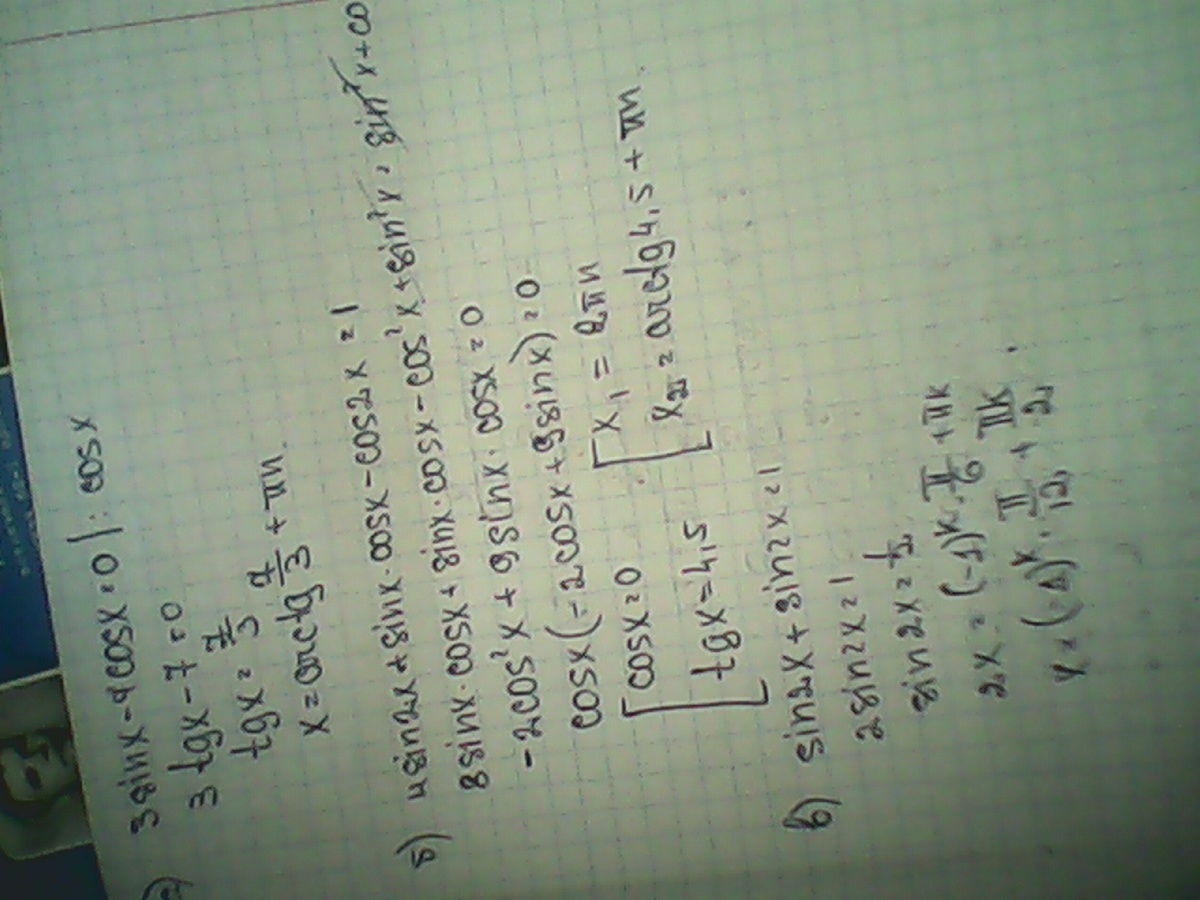 3 sin x - 7 cos x = 0 | : cos x
3 tg x - 7 = 0
tg x = 7/3
x = arctg 7/3 + πn.
б) 4 sin2x + sin x · cos x - cos2x = 1
8 sin x · cos x + sin x · cos x - cos² x + sin² x = sin² x + co
-2cos² x + 9 sin x · cos x = 0
cos x (-2cos x + 9 sin x) = 0
[ cos x = 0 [ x₁ = 2πn
[ tg x = 4,5 [ x₂ = arctg 4,5 + πn.
в) sin 2x + sin 2x = 1
2 sin 2x = 1
sin 2x = 1/2
2x = (-1)ᵏ · π/6 + πk
x = (-1)ᵏ · π/12 + πk/2.